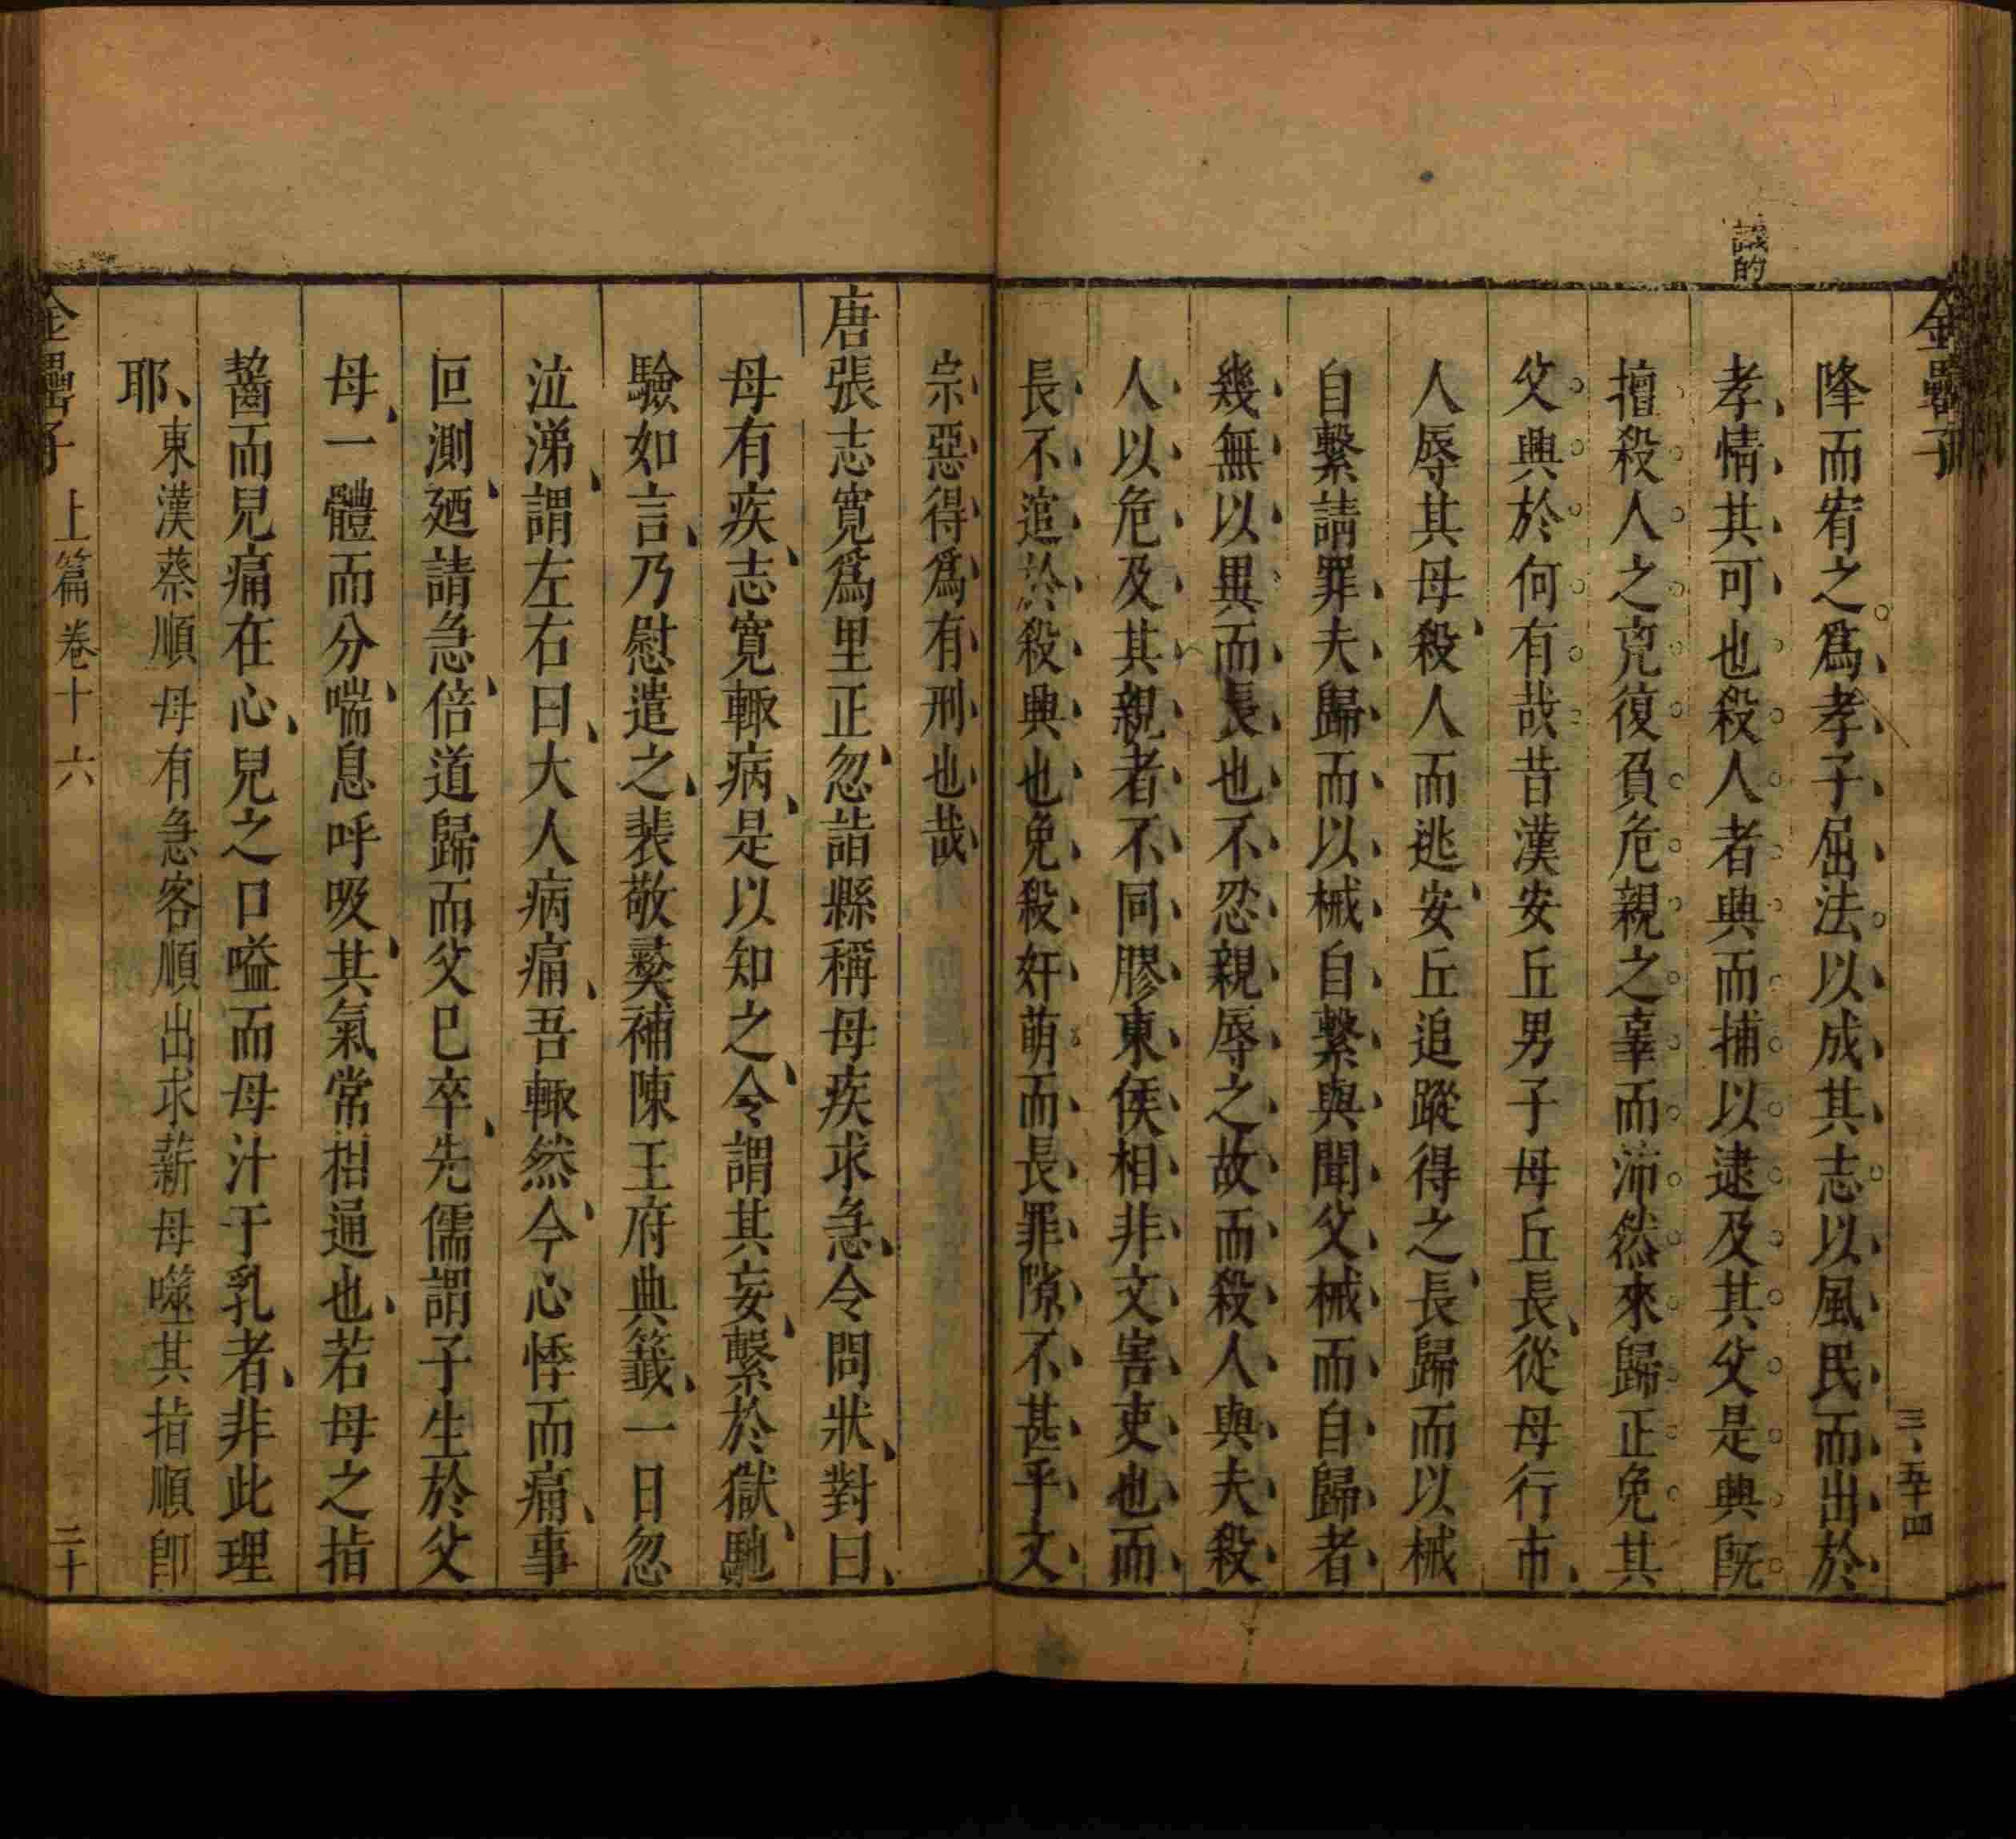 金罍子
三、五十四
議的
降而宥之爲孝子屈法以成其志以風民而出於
孝情其可也殺人者興而捕以逮及其父是興旣
擅殺人之克復負危親之辜而沛然來歸正免其
父興於何有哉昔漢安丘男子母丘長從母行市
人辱其母殺人而逃安丘追蹤得之長歸而以械
自繫請罪夫歸而以械自繫與聞父械而自歸者
幾無以異而長也不忍親辱之故而殺人與夫殺
人以危及其親者不同膠東侯相非文害吏也而
長不逭於殺興也免殺奸萌而長罪隙不甚乎文
宗惡得爲有刑也哉
唐張志寬爲里正忽詣縣稱母疾求急令問狀對曰
母有疾志寬輙病是以知之令謂其妄繫於獄馳
驗如言乃慰遣之裴敬彝補陳王府典籖一日忽
泣涕謂左右曰大人病痛吾輙然今心悸而痛事
叵測廼請急倍道歸而父巳卒先儒謂子生於父
母一體而分喘息呼吸其氣常相通也若母之指
齧而兒痛在心兒之口嗌而母汁于乳者非此理
耶東漢蔡順母有急客順出求薪母噬其指順卽
金罍子
上篇卷十六
二十